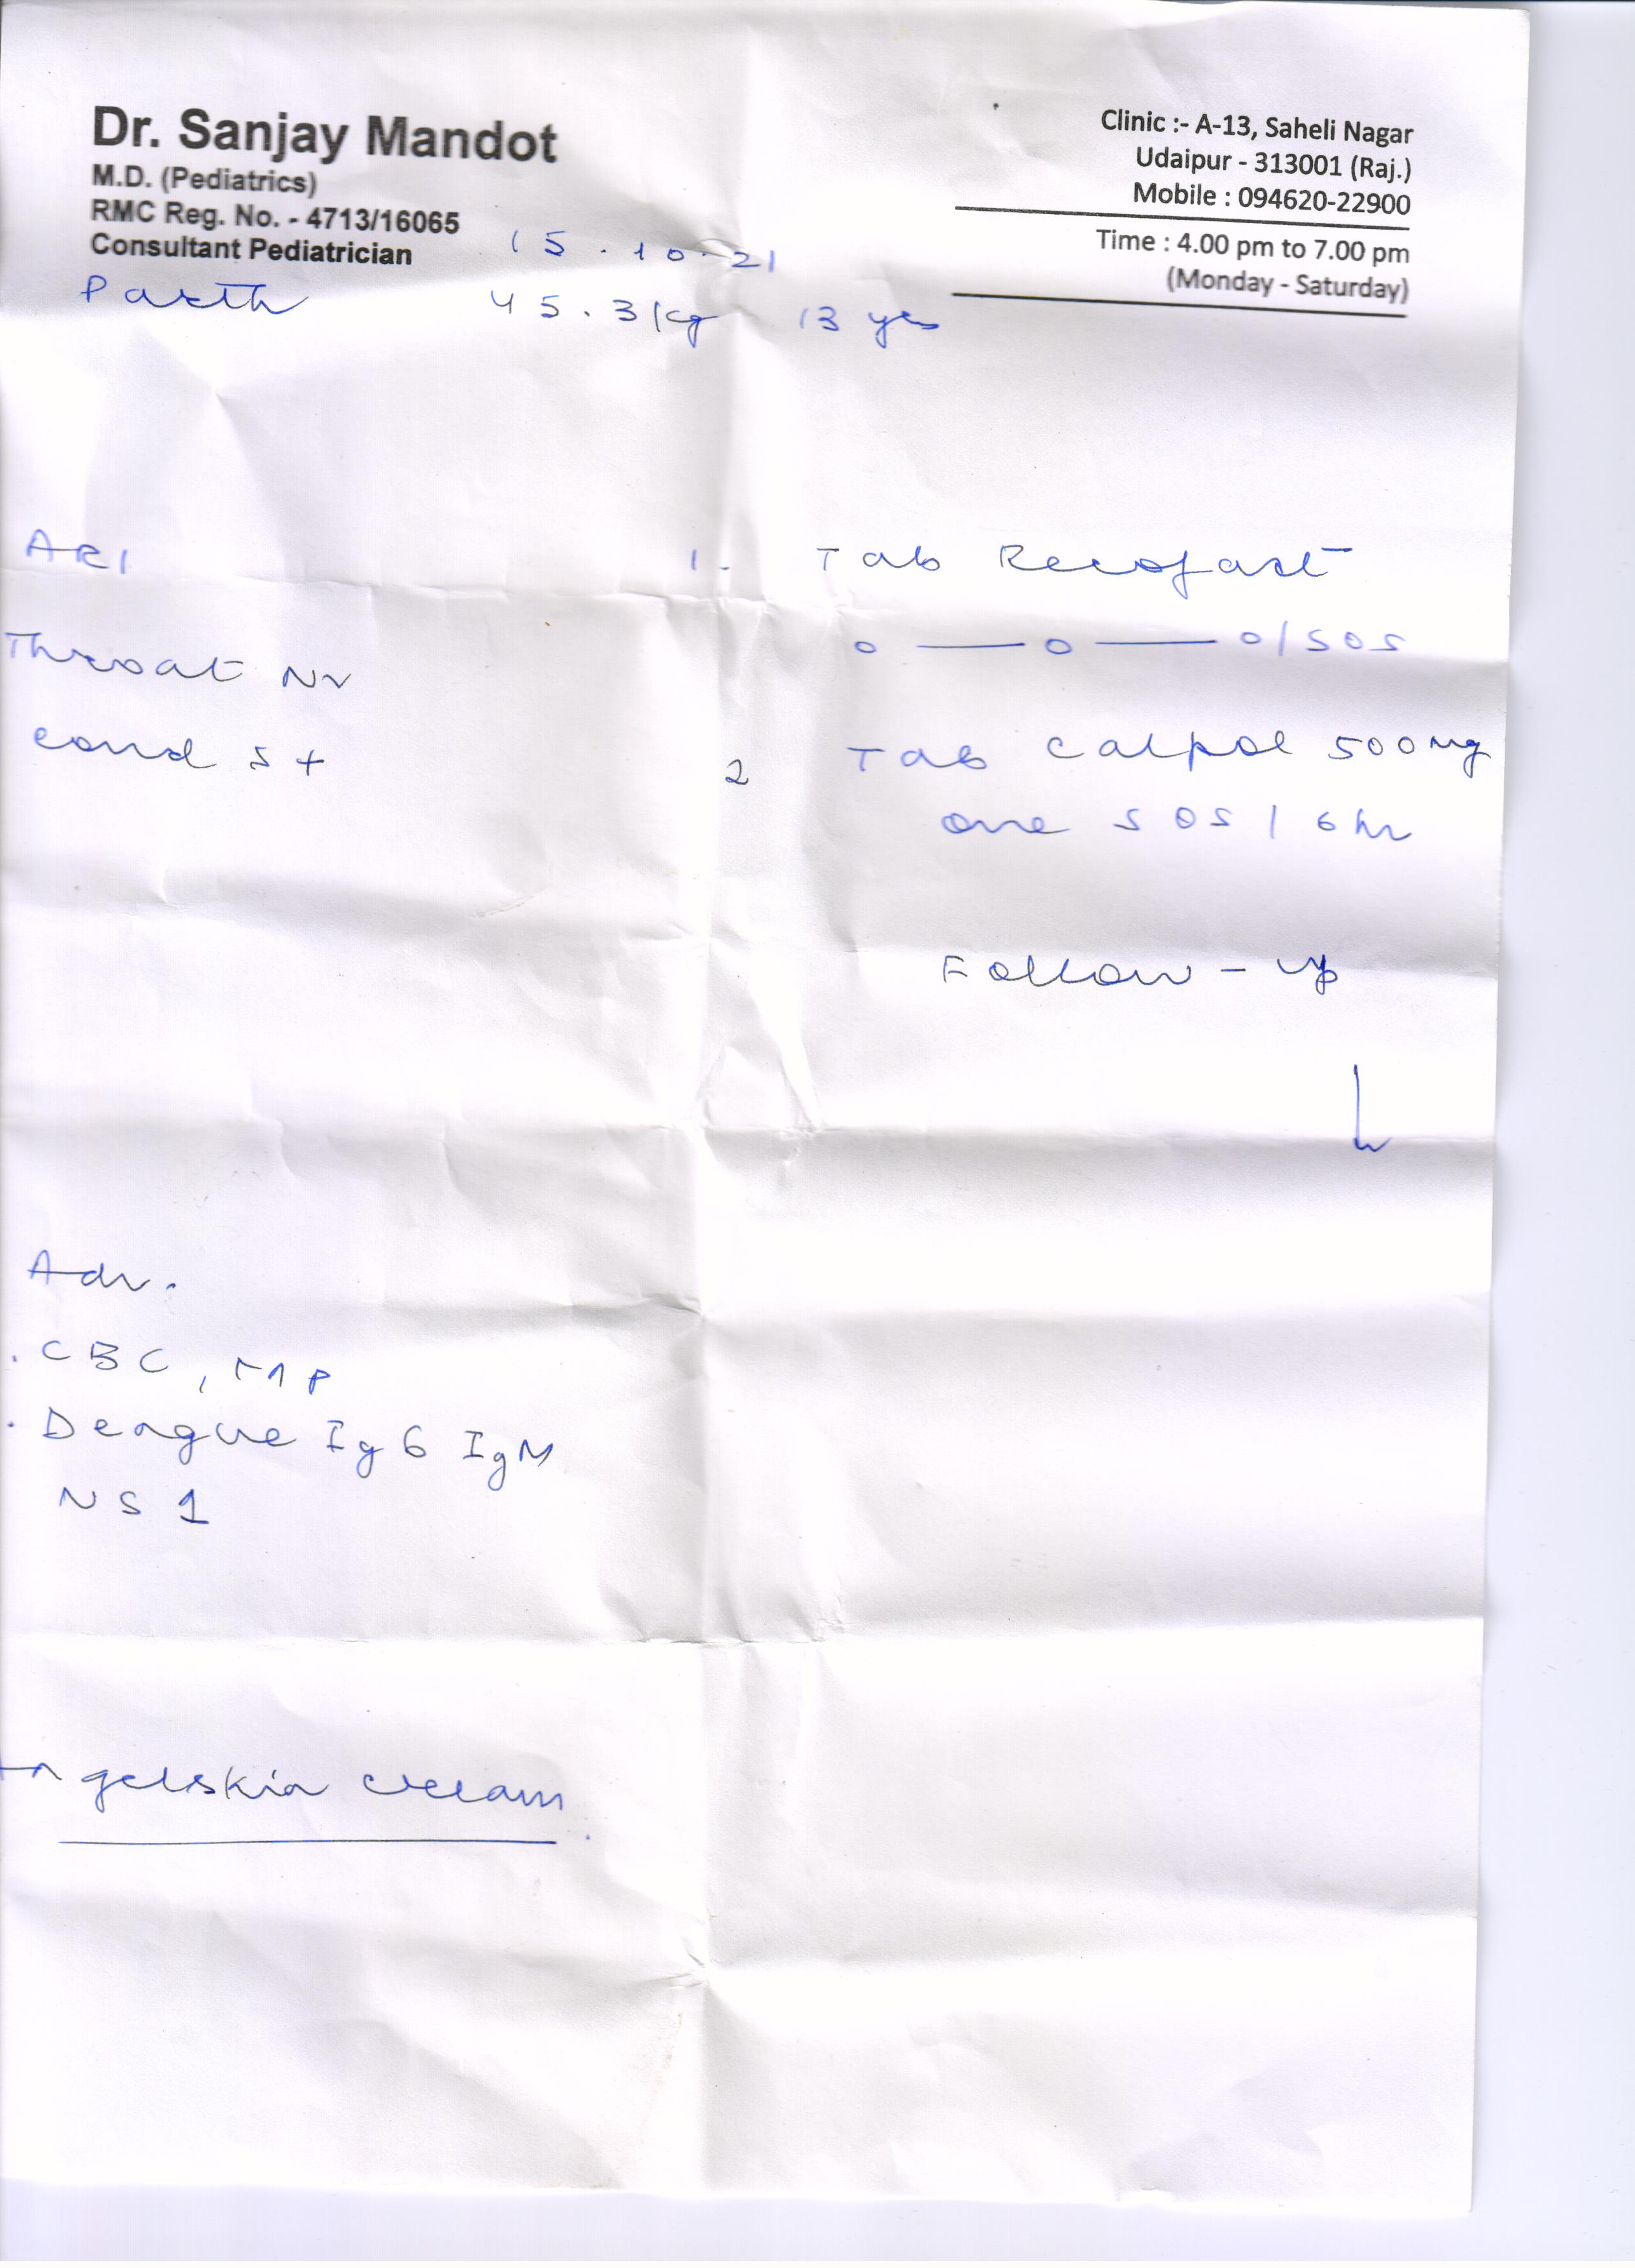 Dr. Sanjay Mandot
M.D. (Pediatrics)
RMC Reg. No. - 4713/16065
Consultant Pediatrician
Clinic :- A-13, Saheli Nagar
Udaipur - 313001 (Raj.)
Mobile : 094620-22900
Time : 4.00 pm to 7.00 pm
(Monday - Saturday)
15.10.21
Parth 45.3kg 13 yrs
ARI
1. Tab
o — o — o/SOS
Throat
s +
2 Tab Calpol 500mg
one SOS/6hr
Follow-up
Adv.
. CBC, MP
. Dengue IgG IgM
NS1
Angelskin cream